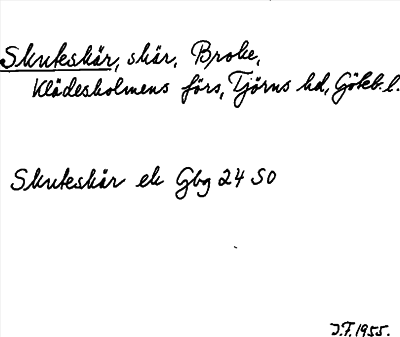 Skuteskär, skär, Broke,
Klädesholmens förs, Tjörns hd, Götebl. l.
Skuteskär ek Gbg 24 SO
J.F. 1955.